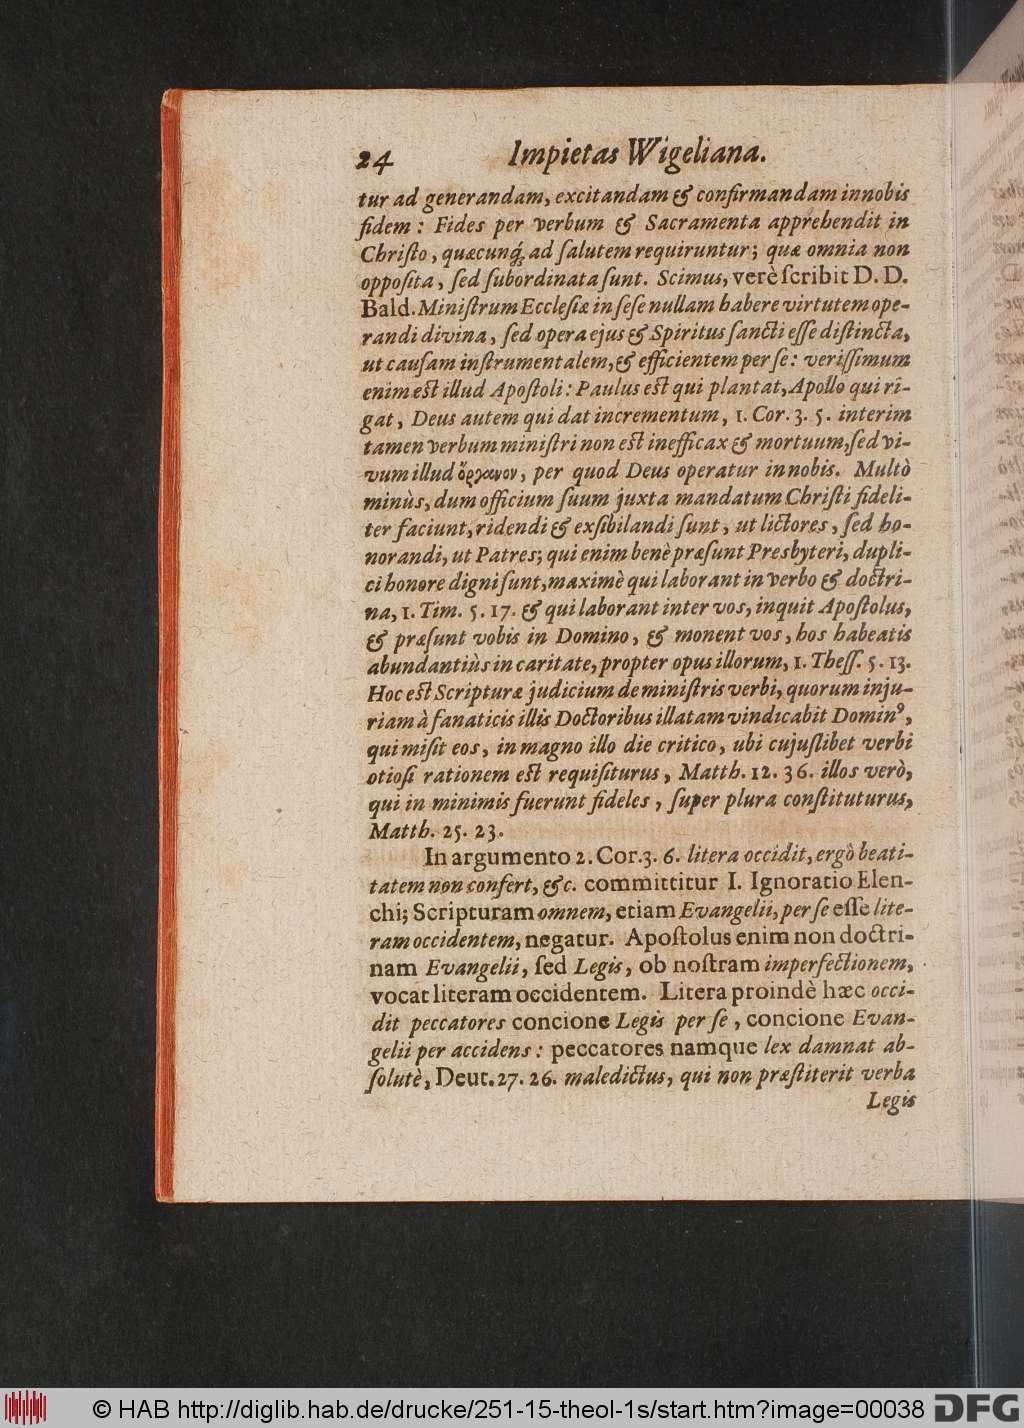 24 Impietas Wigeliana.
tur ad generandam, excitandam & confirmandam in nobis
fidem: Fides per verbum & Sacramenta apprehendit in
Chriſto, quæcunq́; ad ſalutem requiruntur; quæ omnia non
oppoſita, ſed ſubordinata ſunt. Scimus, verè ſcribit D. D.
Bald. Miniſtrum Eccleſiæ in ſeſe nullam habere virtutem ope-
randi divina, ſed opera ejus & Spiritus ſancti eſſe diſtincta,
ut cauſam inſtrumentalem, & efficientem per ſe: veriſſimum
enim eſt illud Apoſtoli: Paulus eſt qui plantat, Apollo qui ri-
gat, Deus autem qui dat incrementum, 1. Cor. 3. 5. interim
tamen verbum miniſtri non eſt inefficax & mortuum, ſed vi-
vum illud ὄργανον, per quod Deus operatur in nobis. Multò
minùs, dum officium ſuum juxta mandatum Chriſti fideli-
ter faciunt, ridendi & exſibilandi ſunt, ut lictores, ſed ho-
norandi, ut Patres; qui enim benè præſunt Presbyteri, dupli-
ci honore digni ſunt, maximè qui laborant in verbo & doctri-
na, 1. Tim. 5. 17. & qui laborant inter vos, inquit Apoſtolus,
& præſunt vobis in Domino, & monent vos, hos habeatis
abundantiùs in caritate, propter opus illorum, 1. Theſſ. 5. 13.
Hoc eſt Scripturæ judicium de miniſtris verbi, quorum inju-
riam à fanaticis illis Doctoribus illatam vindicabit Dominꝰ,
qui miſit eos, in magno illo die critico, ubi cujuſlibet verbi
otioſi rationem eſt requiſiturus, Matth. 12. 36. illos verò,
qui in minimis fuerunt fideles, ſuper plura conſtituturus,
Matth. 25. 23.
In argumento 2. Cor. 3. 6. litera occidit, ergò beati-
tatem non confert, &c. committitur I. Ignoratio Elen-
chi; Scripturam omnem, etiam Evangelii, per ſe eſſe lite-
ram occidentem, negatur. Apoſtolus enim non doctri-
nam Evangelii, ſed Legis, ob noſtram imperfectionem,
vocat literam occidentem. Litera proindè hæc occi-
dit peccatores concione Legis per ſe, concione Evan-
gelii per accidens: peccatores namque lex damnat ab-
ſolutè, Deut. 27. 26. maledictus, qui non præſtiterit verba
Legis
© HAB http://diglib.hab.de/drucke/251-15-theol-1s/start.htm?image=00038 DFG